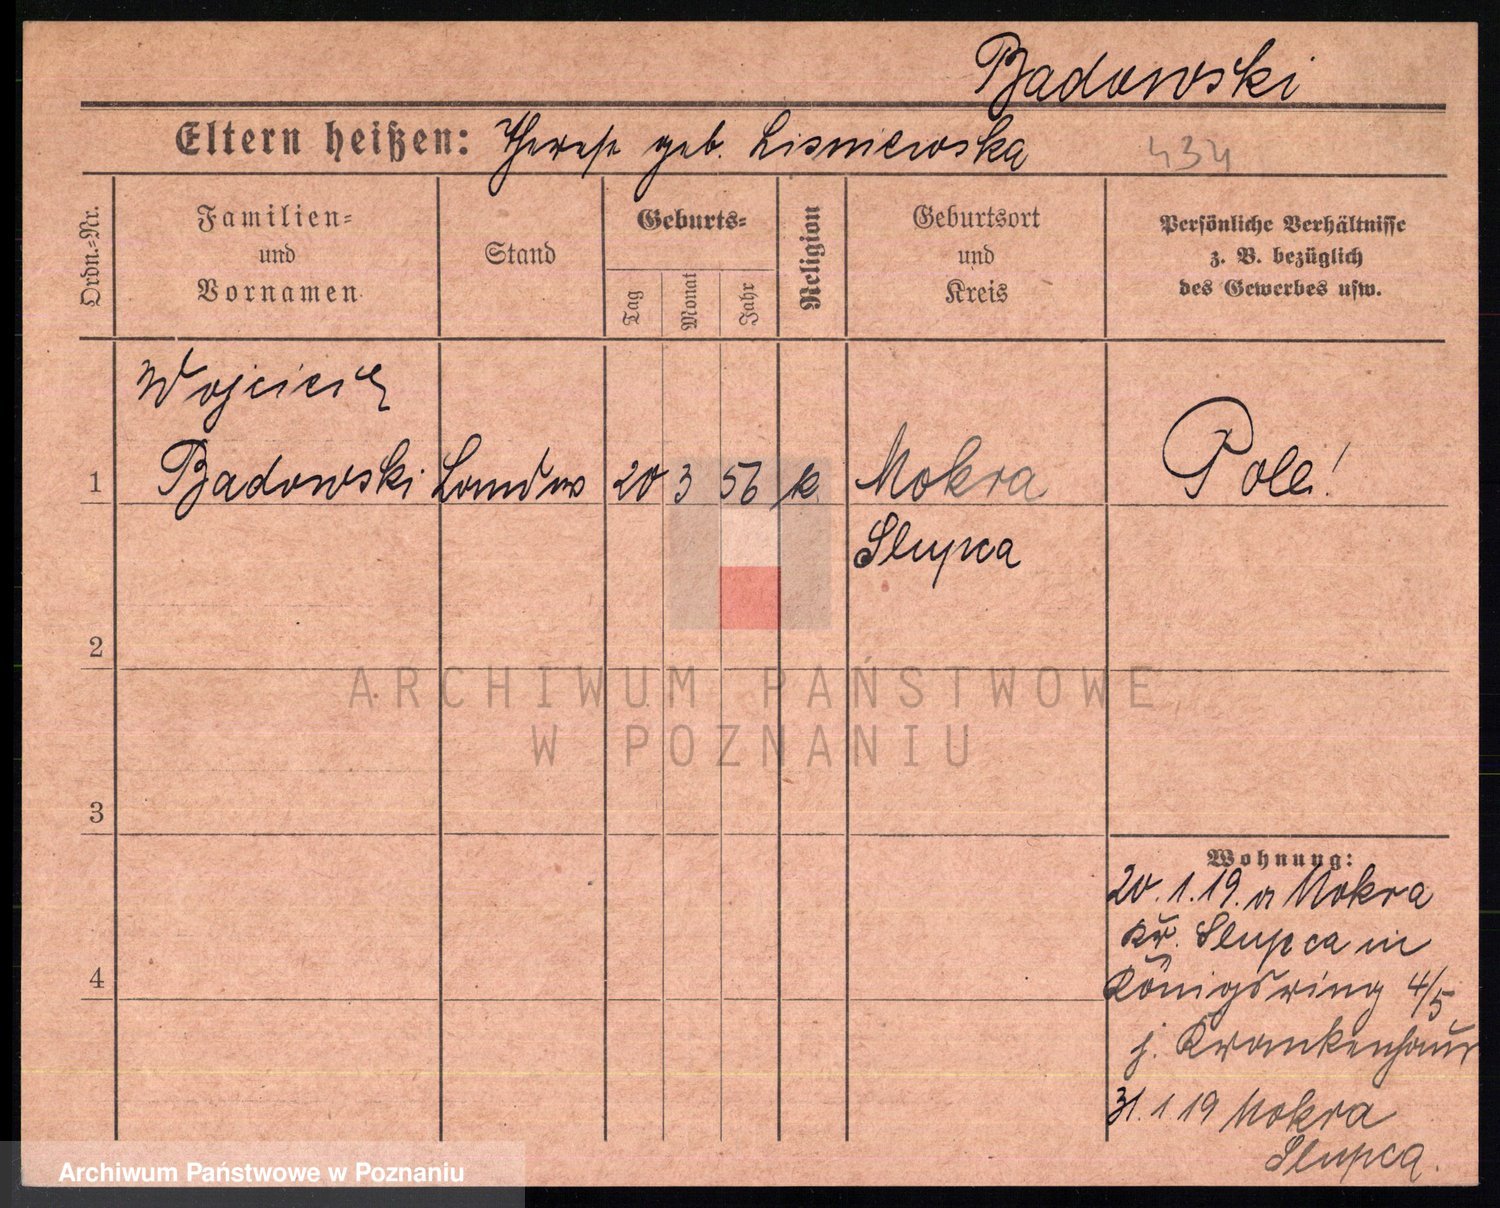 Badowski
Eltern heißen: Therese geb. Lisniewska
434
Ordn.-Nr.
Familien-
und
Vornamen
Stand
Geburts-
Tag
Monat
Jahr
Religion
Geburtsort
und
Kreis
Persönliche Verhältnisse
z. B. bezüglich
des Gewerbes usw.
Wojciech
1 Badowski 20 3 56 k Mokra Pole!
Slupca
2
ARCHIWUM PAŃSTWOWE
W POZNANIU
3
Wohnung:
20.1.19. a Mokra
Kr. Slupca in
4 Königsring 4/5
j. Krankenhaus
31.1 19 Mokra
Slupca.
Archiwum Państwowe w Poznaniu